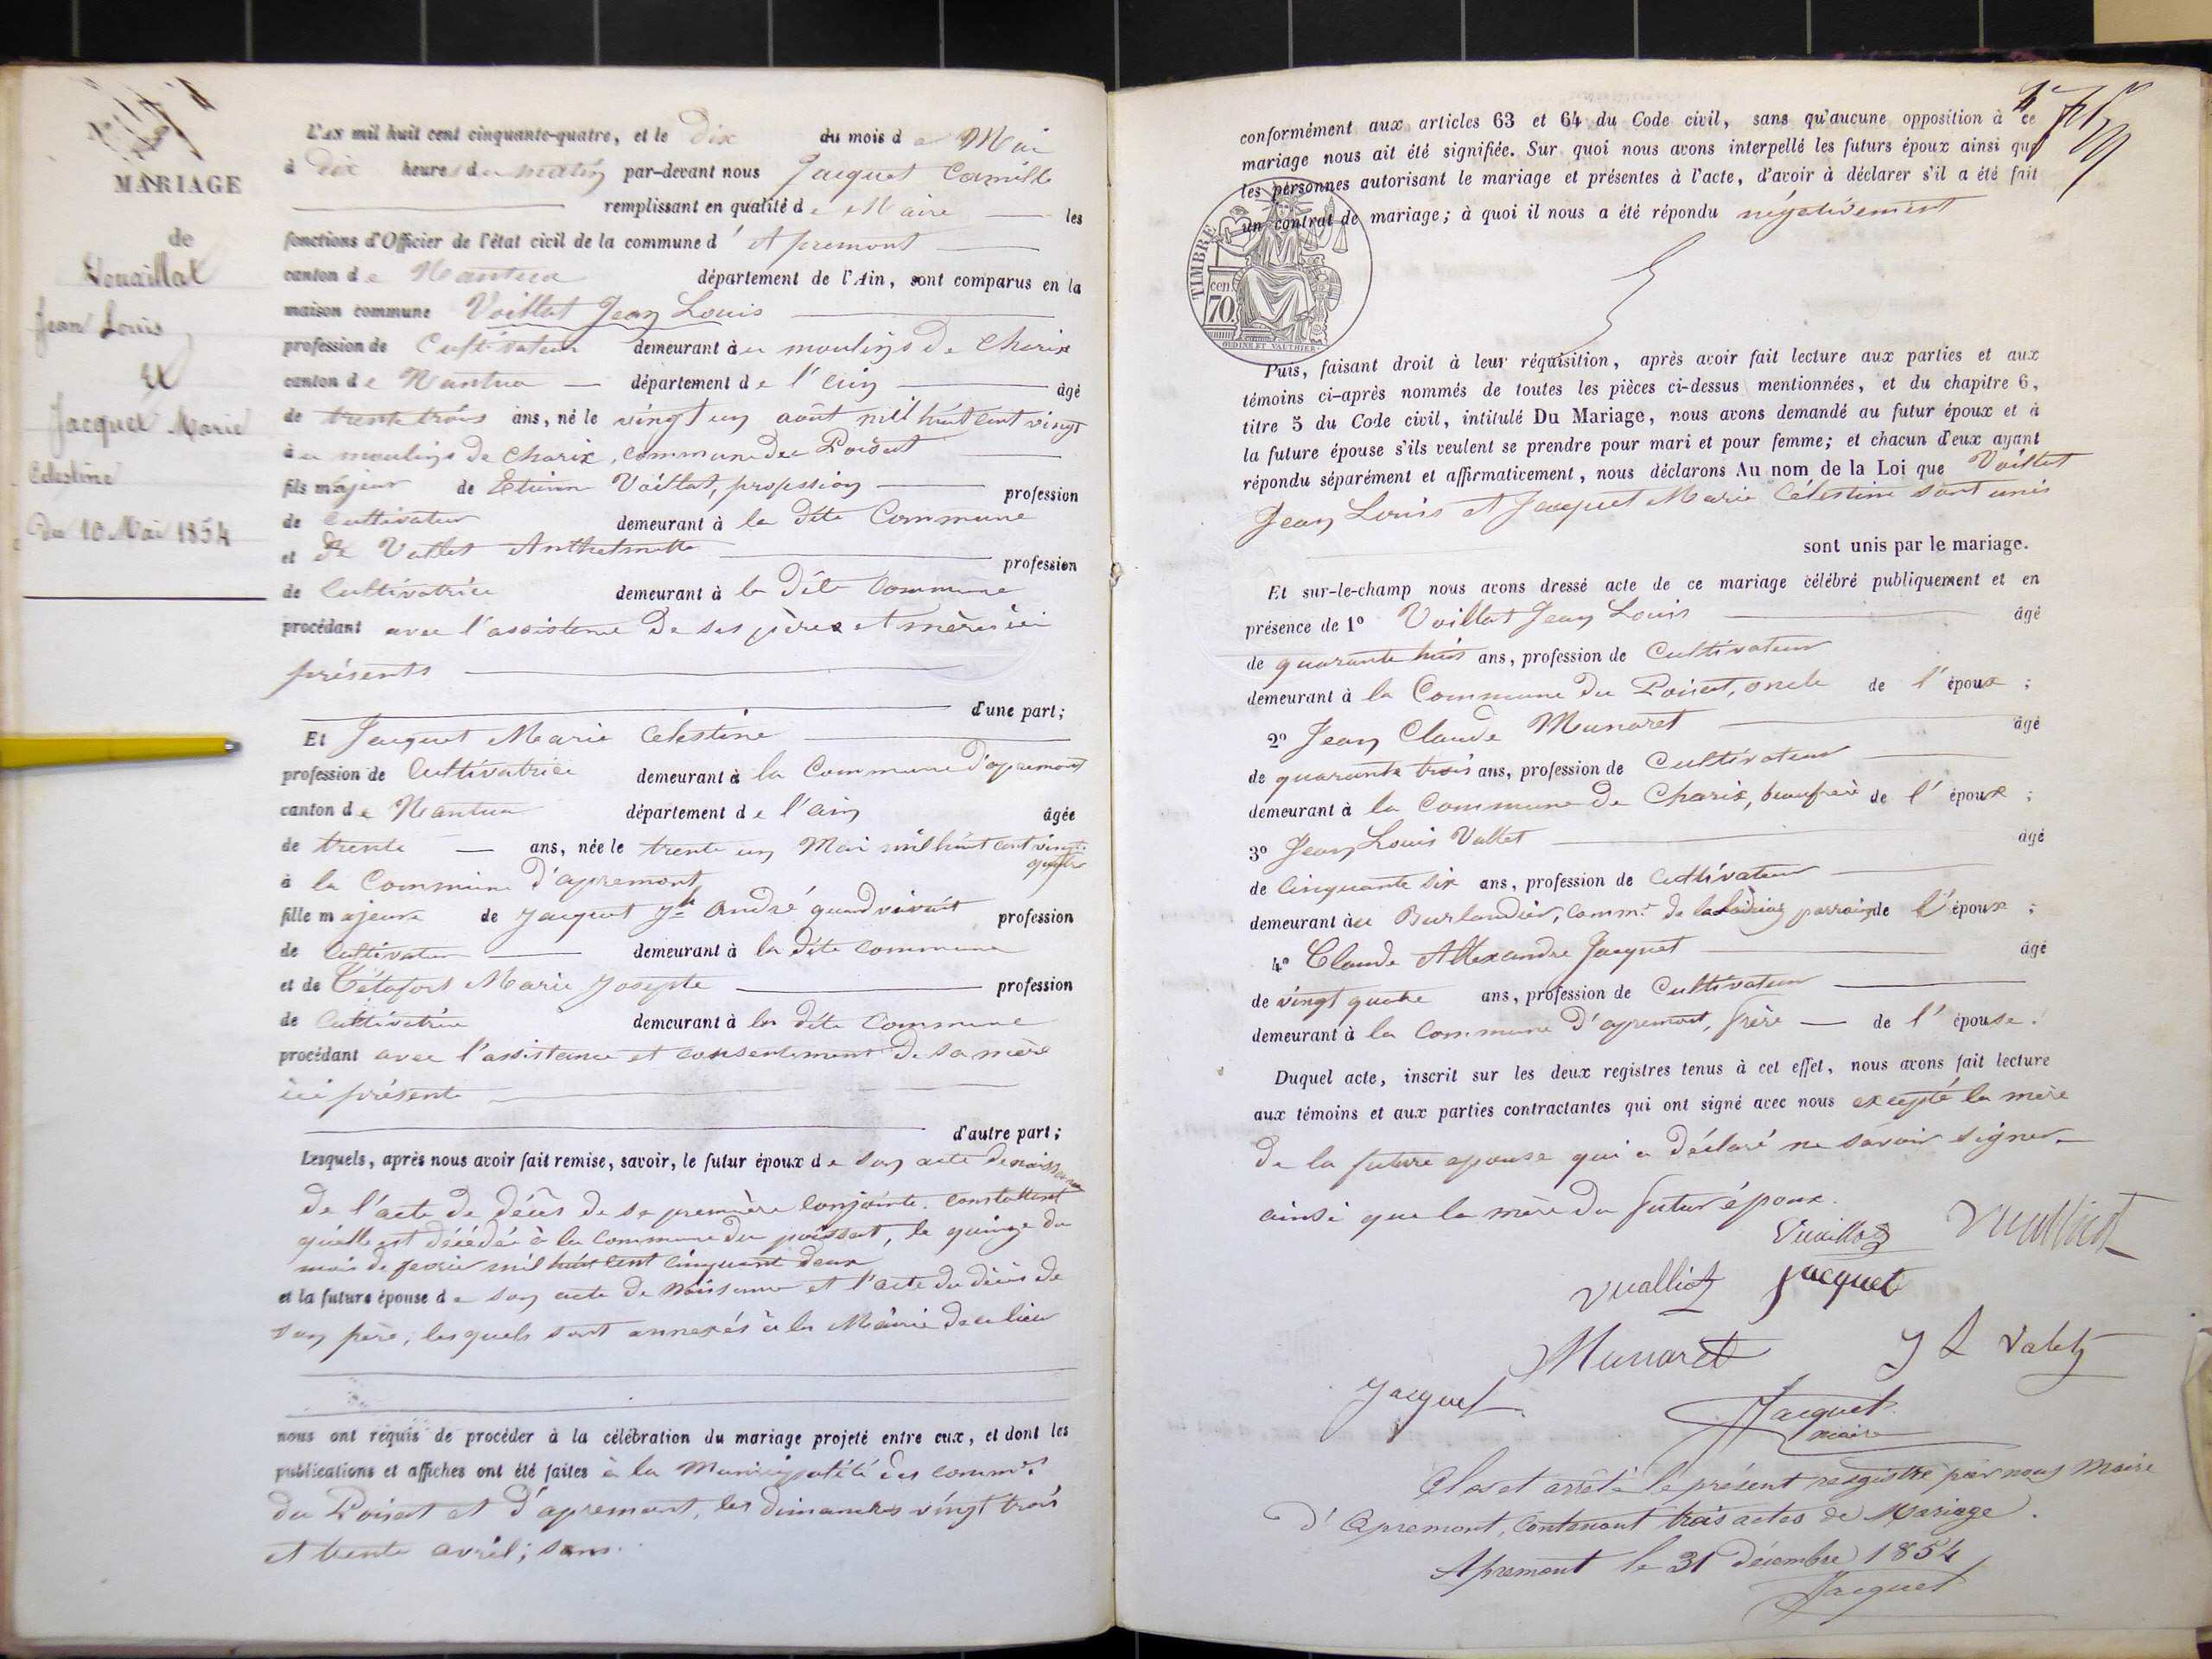 MARIAGE
de
Vouaillat
Jean Louis
et
Jacquet Marie
Celestine
Du 10 Mai 1854
L'AN mil huit cent cinquante-quatre, et le dix du mois de Mai
à dix heures du matin par-devant nous Jacquet Camille
remplissant en qualité de Maire les
fonctions d'Officier de l'état civil de la commune d'Apremont
canton de Nantua département de l'Ain, sont comparus en la
maison commune Voillat Jean Louis
profession de Cultivateur demeurant au moulins de Charix
canton de Nantua département de l'ain âgé
de trente trois ans, né le vingt un août mil huit cent vingt
au moulins de Charix, commune du Poisat
fils majeur de Etienn Voillat, profession profession
de Cultivateur demeurant à la dite Commune
et de Vallet Anthelmette profession
de Cultivatrice demeurant à la dite Commune
procédant avec l'assistance de ses pères et mères ici
présents
d'une part;
Et Jacquet Marie Celestine
profession de Cultivatrice demeurant à la Commune d'apremont
canton de Nantua département de l'ain âgée
de trente ans, née le trente un Mai mil huit cent vingt
quatre
à la Commune d'apremont
fille majeure de Jacquet Jh André quand vivait profession
de Cultivateur demeurant à la dite commune
et de Tétafort Marie Josepte profession
de Cultivatrice demeurant à la dite Commune
procédant avec l'assistance et consentement de sa mère
ici présente
d'autre part;
Lesquels, après nous avoir fait remise, savoir, le futur époux de son acte de naissance
de l'acte de décès de sa première conjointe. constattant
qu'elle est décédée à la commune du poissat, le quinze du
mois de fevrier mil huit cent cinquante deux
et la future épouse de son acte de Naissance et l'acte du décès de
son père, lesquels sont annexés à la Mairie de ce lieu
nous ont requis de procéder à la célébration du mariage projeté entre eux, et dont les
publications et affiches ont été faites à la Municipalité des comm.es
du Poisat et d'apremont, les dimanches vingt trois
et trente avril; sans.
conformément aux articles 63 et 64 du Code civil, sans qu'aucune opposition à ce
mariage nous ait été signifiée. Sur quoi nous avons interpellé les futurs époux ainsi que
les personnes autorisant le mariage et présentes à l'acte, d'avoir à déclarer s'il a été fait
un contrat de mariage; à quoi il nous a été répondu négativement
TIMBRE
70 cen.
OUDINE ET VAUTHIER
Puis, faisant droit à leur réquisition, après avoir fait lecture aux parties et aux
témoins ci-après nommés de toutes les pièces ci-dessus mentionnées, et du chapitre 6,
titre 5 du Code civil, intitulé Du Mariage, nous avons demandé au futur époux et à
la future épouse s'ils veulent se prendre pour mari et pour femme; et chacun d'eux ayant
répondu séparément et affirmativement, nous déclarons Au nom de la Loi que Voillat
Jean Louis et Jacquet Marie Célestine sont unis
sont unis par le mariage.
Et sur-le-champ nous avons dressé acte de ce mariage célébré publiquement et en
présence de 1º Voillat Jean Louis âgé
de quarante huit ans, profession de Cultivateur
demeurant à la Commune du Poisat, oncle de l'époux;
2º Jean Claude Munaret âgé
de quarante trois ans, profession de Cultivateur
demeurant à la Commune de Charix, beaufrère de l'époux;
3º Jean Louis Vallet âgé
de Cinquante six ans, profession de Cultivateur
demeurant au Burlandier, comm.e de parrain de l'époux;
4º Claude Allexandre Jacquet âgé
de vingt quatre ans, profession de Cultivateur
demeurant à la Commune d'apremont, frère de l'épouse.
Duquel acte, inscrit sur les deux registres tenus à cet effet, nous avons fait lecture
aux témoins et aux parties contractantes qui ont signé avec nous excepté la mère
de la future epouse qui a déclaré ne savoir signer
ainsi que la mère du futur époux.
Vuaillat Vualliat
Vualliat Jacquet
Munaret J L Valet
Jacquet Jacquet
maire
Clos et arrêté le présent registre par nous Maire
d'Apremont, contenant trois actes de Mariage.
Apremont le 31 décembre 1854
Jacquet